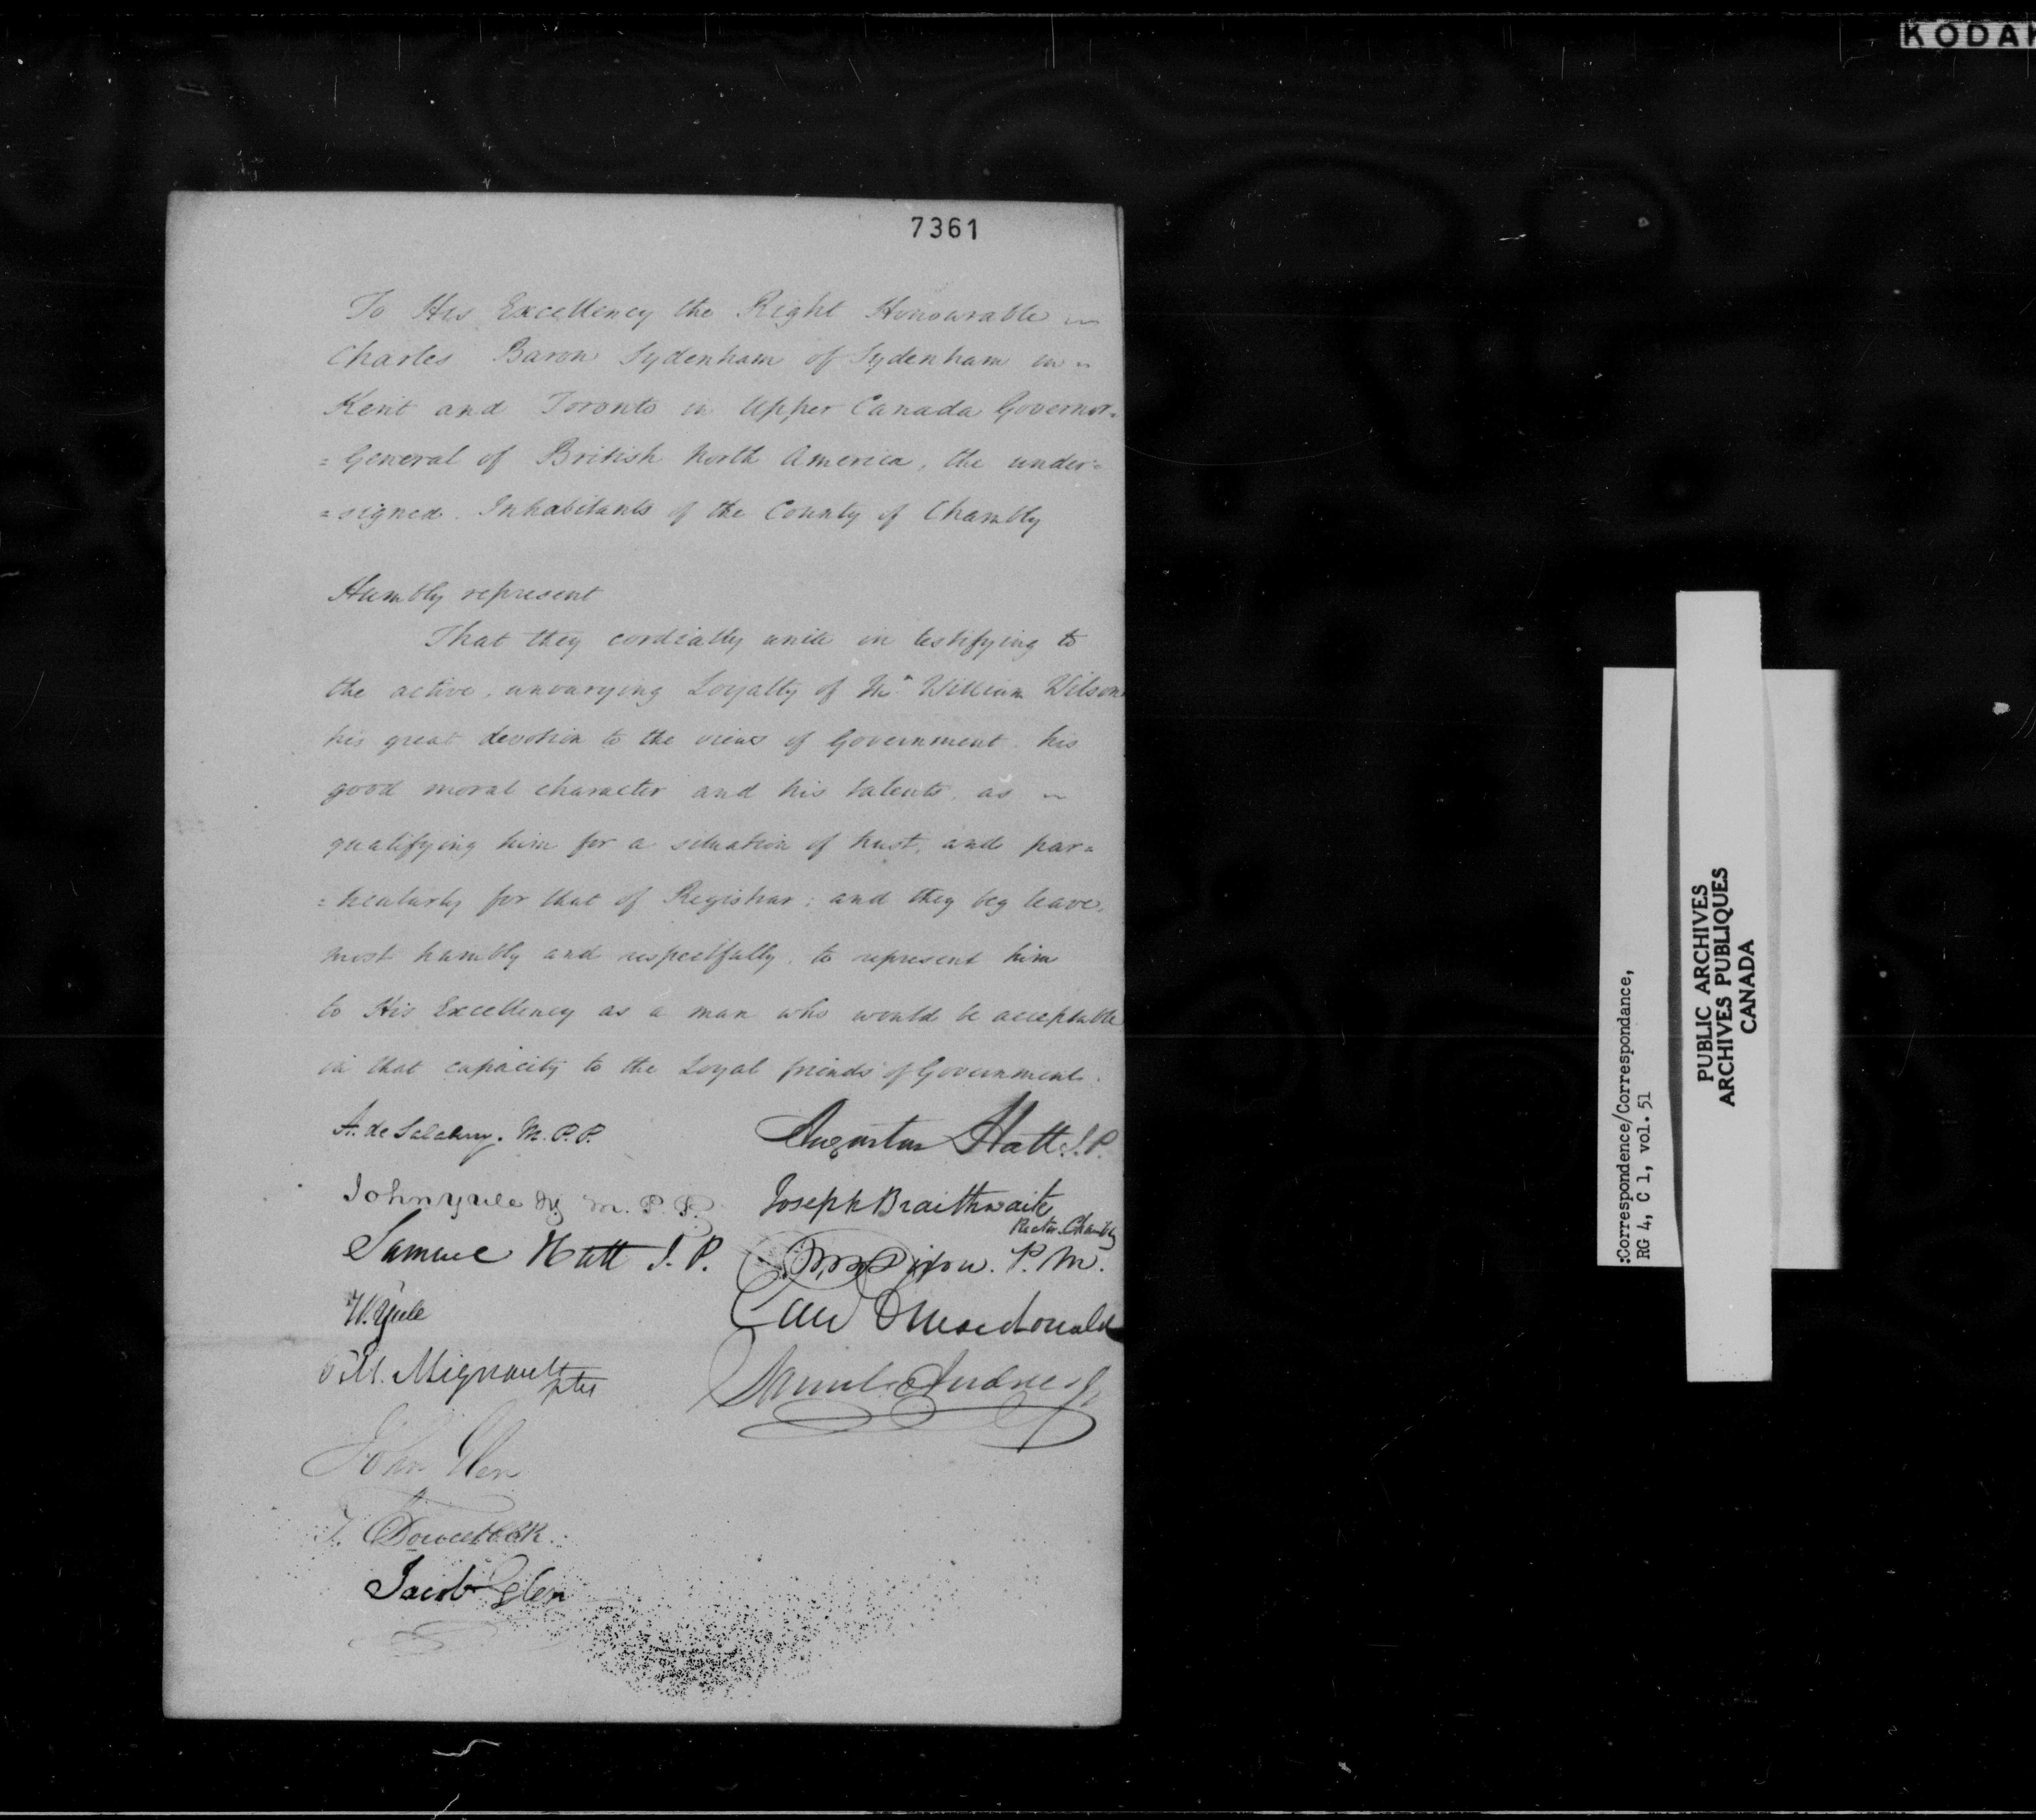 KODAK
7361
To His Excellency the Right Honourable
Charles Baron Sydenham of Sydenham in
Kent and Toronto in Upper Canada Governor=
=General of British North America, the under=
=signed Inhabitants of the County of Chambly
Humbly represent
That they cordially unite in testifying to
the active, unvarying Loyalty of Mr. William Wilson
his great devotion to the views of Government, his
good moral character and his talents, as
qualifying him for a situation of trust, and par=
=ticularly for that of Registrar; and they beg leave,
most humbly and respectfully, to represent him
to His Excellency as a man who would be acceptable
in that capacity to the Loyal friends of Government.
A. de Salabery. M.P.P.
Augustus Hatt J.P.
John Yule M.P.P.
Joseph Braithwaite
Rector Chambly
Samuel Hatt J.P.
P.M.
W. Yule
Macdonald
P.M. Mignault ptre
Samuel Andres
John Glen
T. Doucet
Jacob Glen
:Correspondence/Correspondance,
RG 4, C 1, vol. 51
PUBLIC ARCHIVES
ARCHIVES PUBLIQUES
CANADA